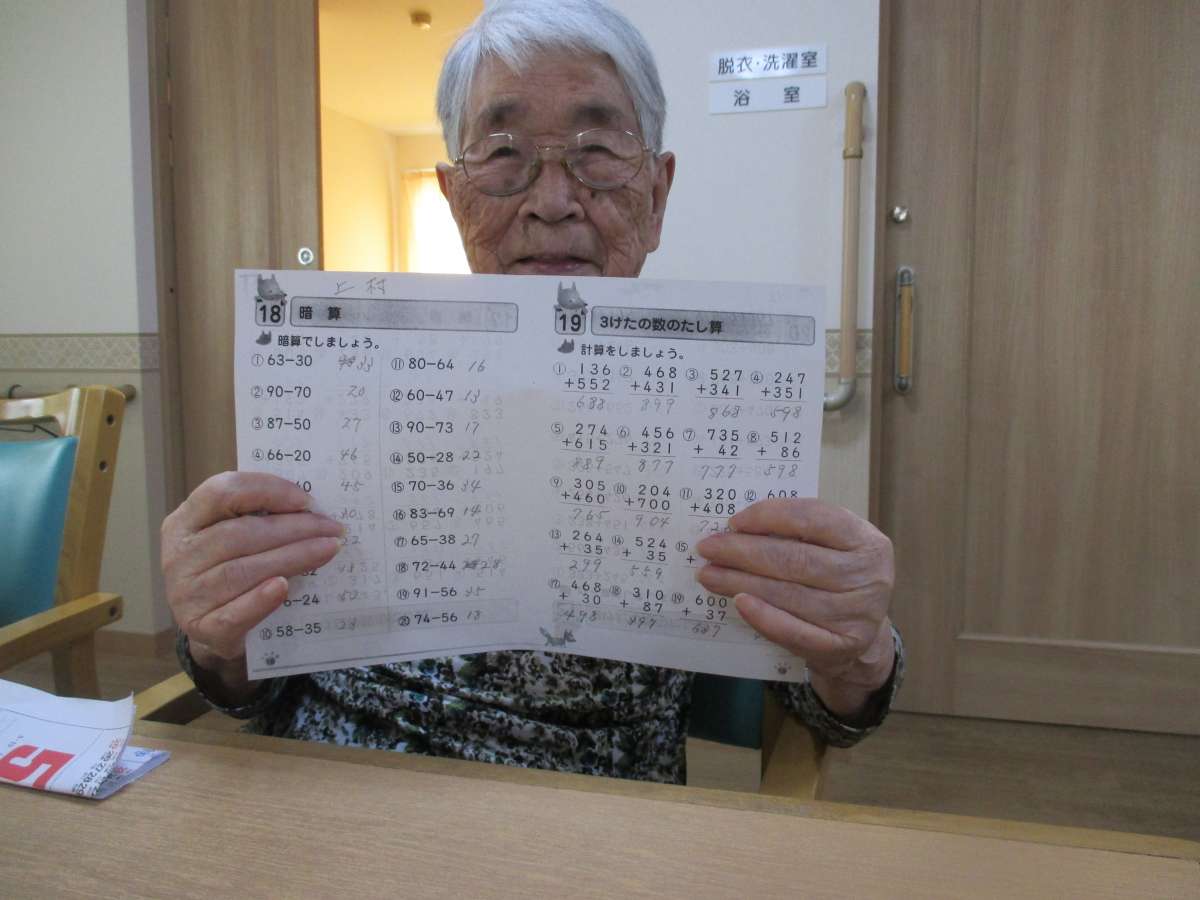 脱衣・洗濯室
浴 室
上村
18 暗 算
暗算でしましょう。
① 63−30 33
② 90−70 20
③ 87−50 27
④ 66−20 46
45
⑩ 58−35 23
⑪ 80−64 16
⑫ 60−47 13
⑬ 90−73 17
⑭ 50−28 22
⑮ 70−36 34
⑯ 83−69 14
⑰ 65−38 27
⑱ 72−44 28
⑲ 91−56 35
⑳ 74−56 18
19 3けたの数のたし算
計算をしましょう。
① 136 ② 468 ③ 527 ④ 247
+552 +431 +341 +351
688 899 868 598
⑤ 274 ⑥ 456 ⑦ 735 ⑧ 512
+615 +321 + 42 + 86
889 877 777 598
⑨ 305 ⑩ 204 ⑪ 320 ⑫ 608
+460 +700 +408
765 904
⑬ 264 ⑭ 524 ⑮
+ 35 + 35 +
299 559
⑰ 468 ⑱ 310 ⑲ 600
+ 30 + 87 + 37
498 397 637
5